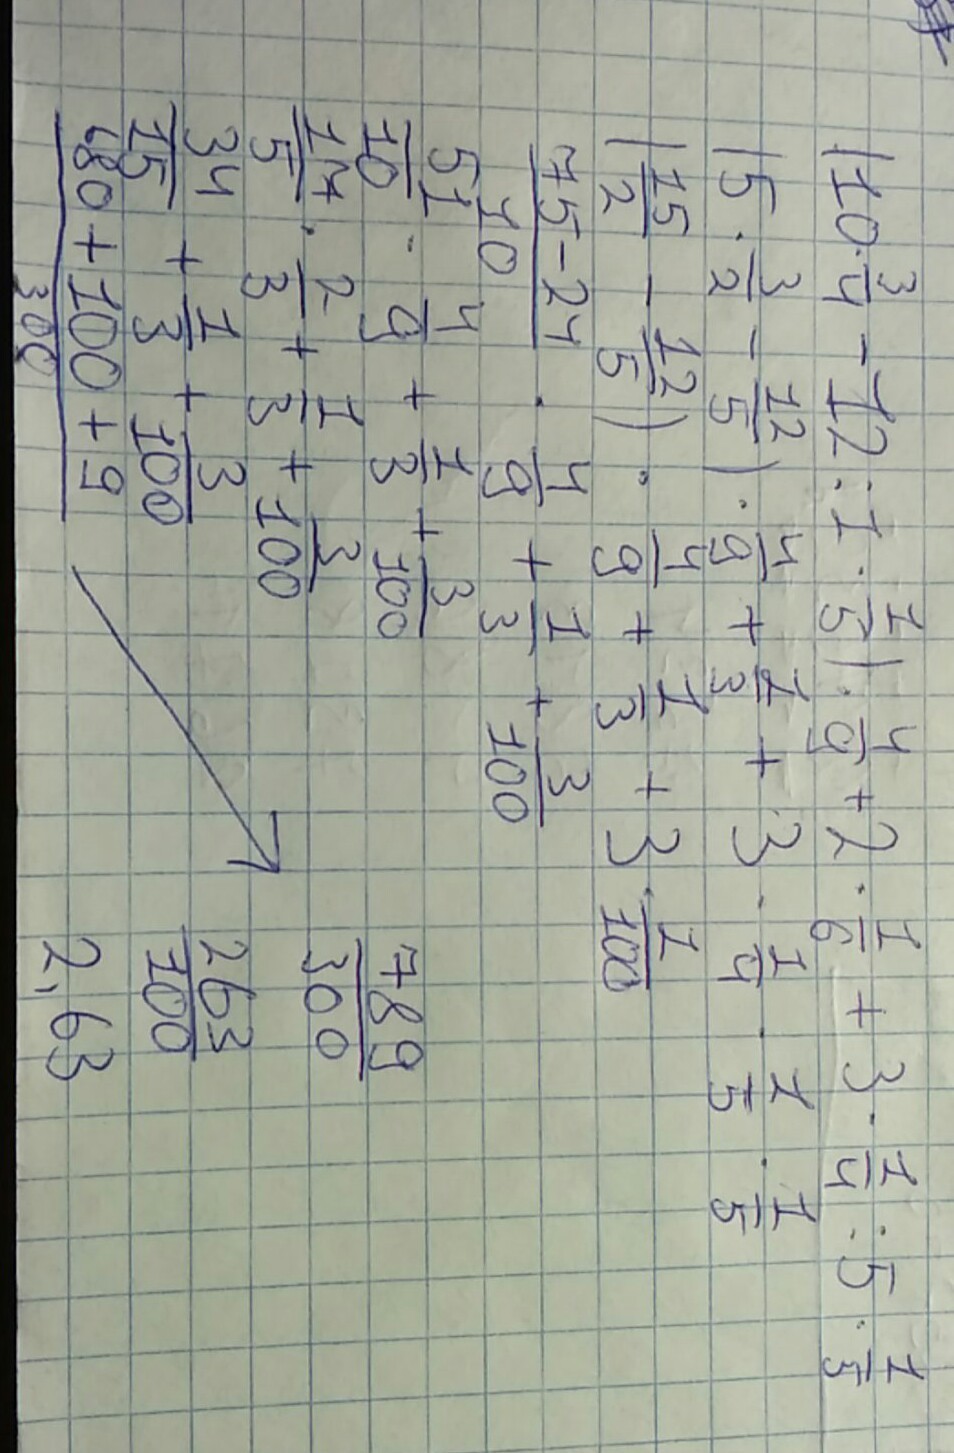 (10·3/4 - 12:1·1/5)·4/9+2·1/6+3·1/4:5·1/5
(5·3/2 - 12/5)·4/9+1/3+3·1/4·1/5·1/5
(15/2 - 12/5)·4/9+1/3+3·1/100
75-24/10·4/9+1/3+3/100
51/10·4/9+1/3+3/100
17/5·2/3+1/3+3/100
34/15+1/3+3/100
680+100+9/300
789/300
263/100
2,63